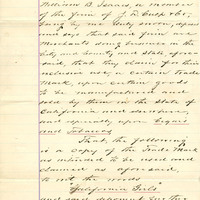 William B. Isaacs, a member
of the firm of
being by me duly sworn, depose
and says that said firm are
Merchants doing business in the
City and County and State afore
said, that they claim for their
exclusive use, a certain Trade
Mark, upon certain goods
to be manufactured and
sold by them in the State of
California and elsewhere,
and especially upon Cigars
and Tobaccos
That, the following
is a copy of the Trade Mark
as intended to be used and
claimed as aforesaid,
to wit the words
"California Girls"
and said